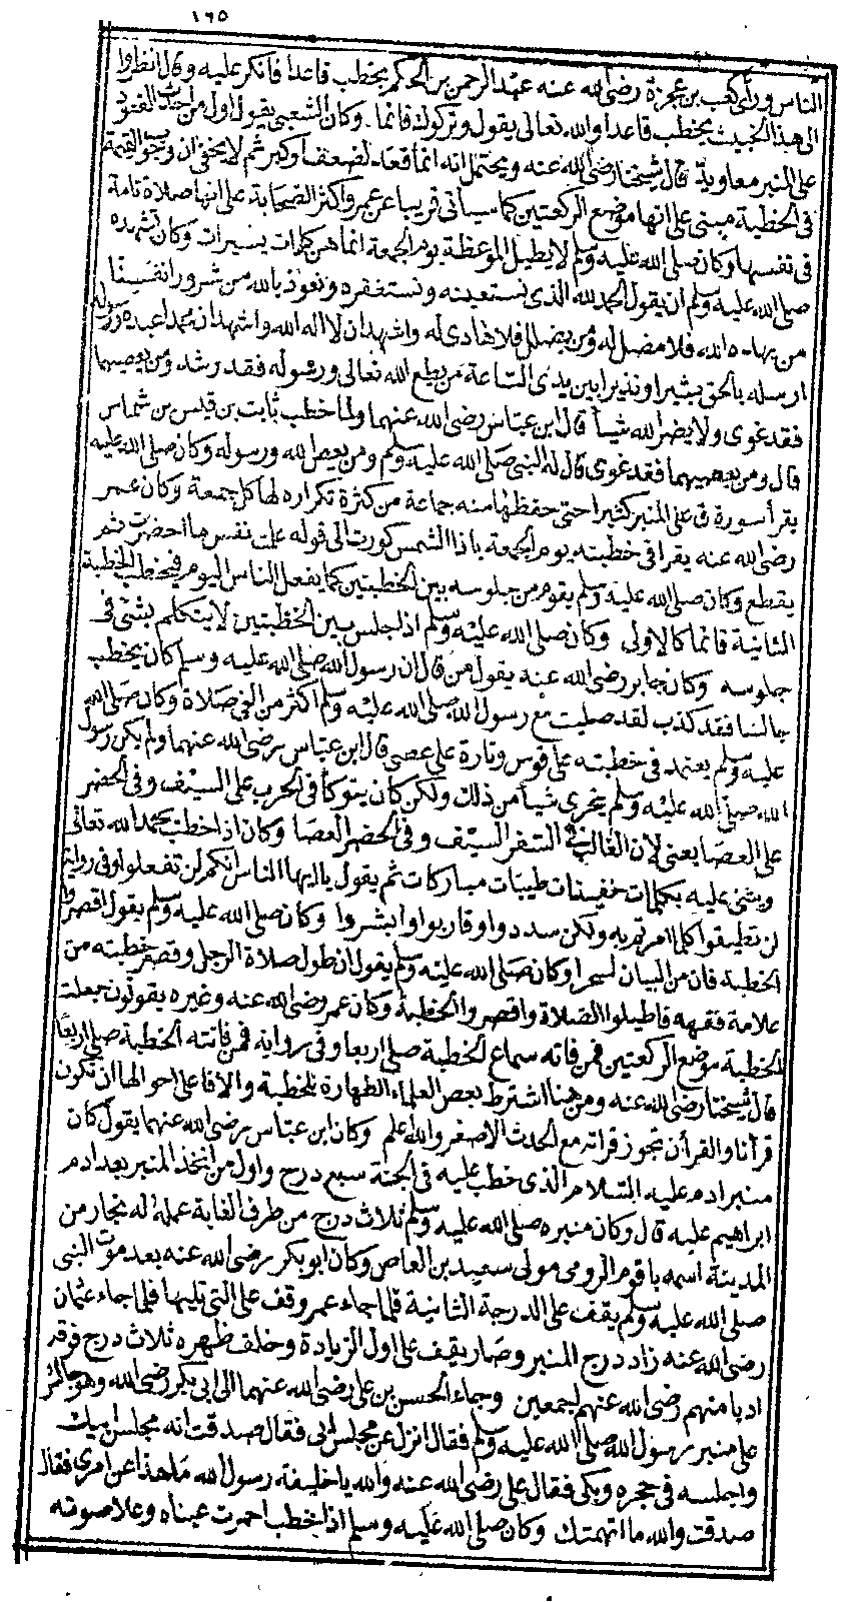 ١٦٥
الناس ورأى كعب بن عجرة رضي الله عنه عبد الرحمن بن الحكم يخطب قاعدا فانكر عليه وقال انظروا
الى هذا الخبيث يخطب قاعدا والله تعالى يقول وتركوك قائما وكان الشعبي يقول اول من احدث القعود
على المنبر معاوية قال شيخنا رضي الله عنه ويحتمل انه انما قعد لضعف او كبر ثم لا يخفى ان وجوب القيمة
فى الخطبة مبني على انها موضع الركعتين كما سياتى قريبا عن عمر واكثر الصحابة على انها صلاة تامة
فى نفسها وكان صلى الله عليه وسلم لا يطيل الموعظة يوم الجمعة انما هن كلمات يسيرات وكان تشهده
صلى الله عليه وسلم ان يقول الحمد لله الذى نستعينه ونستغفره ونعوذ بالله من شرور انفسنا
من يهده الله فلا مضل له ومن يضلل فلا هادى له واشهد ان لا اله الا الله واشهد ان محمدا عبده ورسوله
ارسله بالحق بشيرا ونذيرا بين يدى الساعة من يطع الله تعالى ورسوله فقد رشد ومن يعصهما
فقد غوى ولا يضر الله شيأ قال ابن عباس رضي الله عنهما ولما خطب ثابت بن قيس بن شماس
قال ومن يعصيهما فقد غوى قال له النبى صلى الله عليه وسلم ومن يعص الله ورسوله وكان صلى الله عليه
يقرأ سورة ق على المنبر كثيرا حتى حفظها منه جماعة من كثرة تكراره لها كل جمعة وكان عمر
رضى الله عنه يقرا فى خطبته يوم الجمعة باذا الشمس كورت الى قوله علمت نفس ما احضرت ثم
يقطع وكان صلى الله عليه وسلم يقوم من جلوسه بين الخطبتين كما يفعل الناس اليوم فيخطب الخطبة
الثانية قائما كالاولى وكان صلى الله عليه وسلم اذ اجلس بين الخطبتين لا يتكلم بشئ فى
جلوسه وكان جابر رضى الله عنه يقول من قال ان رسول الله صلى الله عليه وسلم كان يخطب
جالسا فقد كذب لقد صليت مع رسول الله صلى الله عليه وسلم اكثر من الفى صلاة وكان صلى الله
عليه وسلم يعتمد فى خطبته على قوس وتارة على عصى قال ابن عباس رضى الله عنهما ولم يكن رسول
الله صلى الله عليه وسلم يتحرى شيأ من ذلك ولكن كان يتوكأ فى الحرب على السيف وفى الحضر
على العصا يعنى لان الغالب فى السفر السيف وفى الحضر العصا وكان اذا خطب يحمد الله تعالى
ويثنى عليه بكلمات خفيفات طيبات مباركات ثم يقول يا ايها الناس انكم لن تفعلوا وفى رواية
لن تطيقوا كلما امرتم به ولكن سددوا وقاربوا وابشروا وكان صلى الله عليه وسلم يقول اقصروا
الخطبة فان من البيان لسحرا وكان صلى الله عليه وسلم يقول ان طول صلاة الرجل وقصر خطبته من
علامة فقهه فاطيلوا الصلاة واقصروا الخطبة وكان عمر رضى الله عنه وغيره يقولون جعلت
الخطبة موضع الركعتين فمن فاته سماع الخطبة صلى اربعا وفى رواية فمن فاتته الخطبة صلى اربعا
قال شيخنا رضى الله عنه ومن هنا اشترط بعض العلماء الطهارة للخطبة والا فاعلى احوالها ان تكون
قرآنا والقرآن تجوز قراته مع الحدث الاصغر والله اعلم وكان ابن عباس رضى الله عنهما يقول كان
منبر ادم عليه السلام الذى خطب عليه فى الجنة سبع درج واول من اتخذ المنبر بعد ادم
ابراهيم عليه قال وكان منبره صلى الله عليه وسلم ثلاث درج من طرف الغابة عمله له نجار من
المدينة اسمه باقوم الرومى مولى سعيد بن العاص وكان ابو بكر رضى الله عنه بعد موت النبى
صلى الله عليه وسلم يقف على الدرجة الثانية فلما جاء عمر وقف على التى تليها فلما جاء عثمان
رضى الله عنه زاد درج المنبر وصار يقف على اول الزيادة وخلف ظهره ثلاث درج فوقه
ادبا منهم رضى الله عنهم اجمعين وجاء الحسن بن على رضى الله عنهما الى ابى بكر رضى الله وهو جالس
على منبر رسول الله صلى الله عليه وسلم فقال انزل عن مجلس ابى فقال صدقت انه مجلس ابيك
واجلسه فى حجره وبكى فقال على رضى الله عنه والله يا خليفة رسول الله ما هذا عن امرى فقال
صدقت والله ما اتهمتك وكان صلى الله عليه وسلم اذا خطب احمرت عيناه وعلا صوته